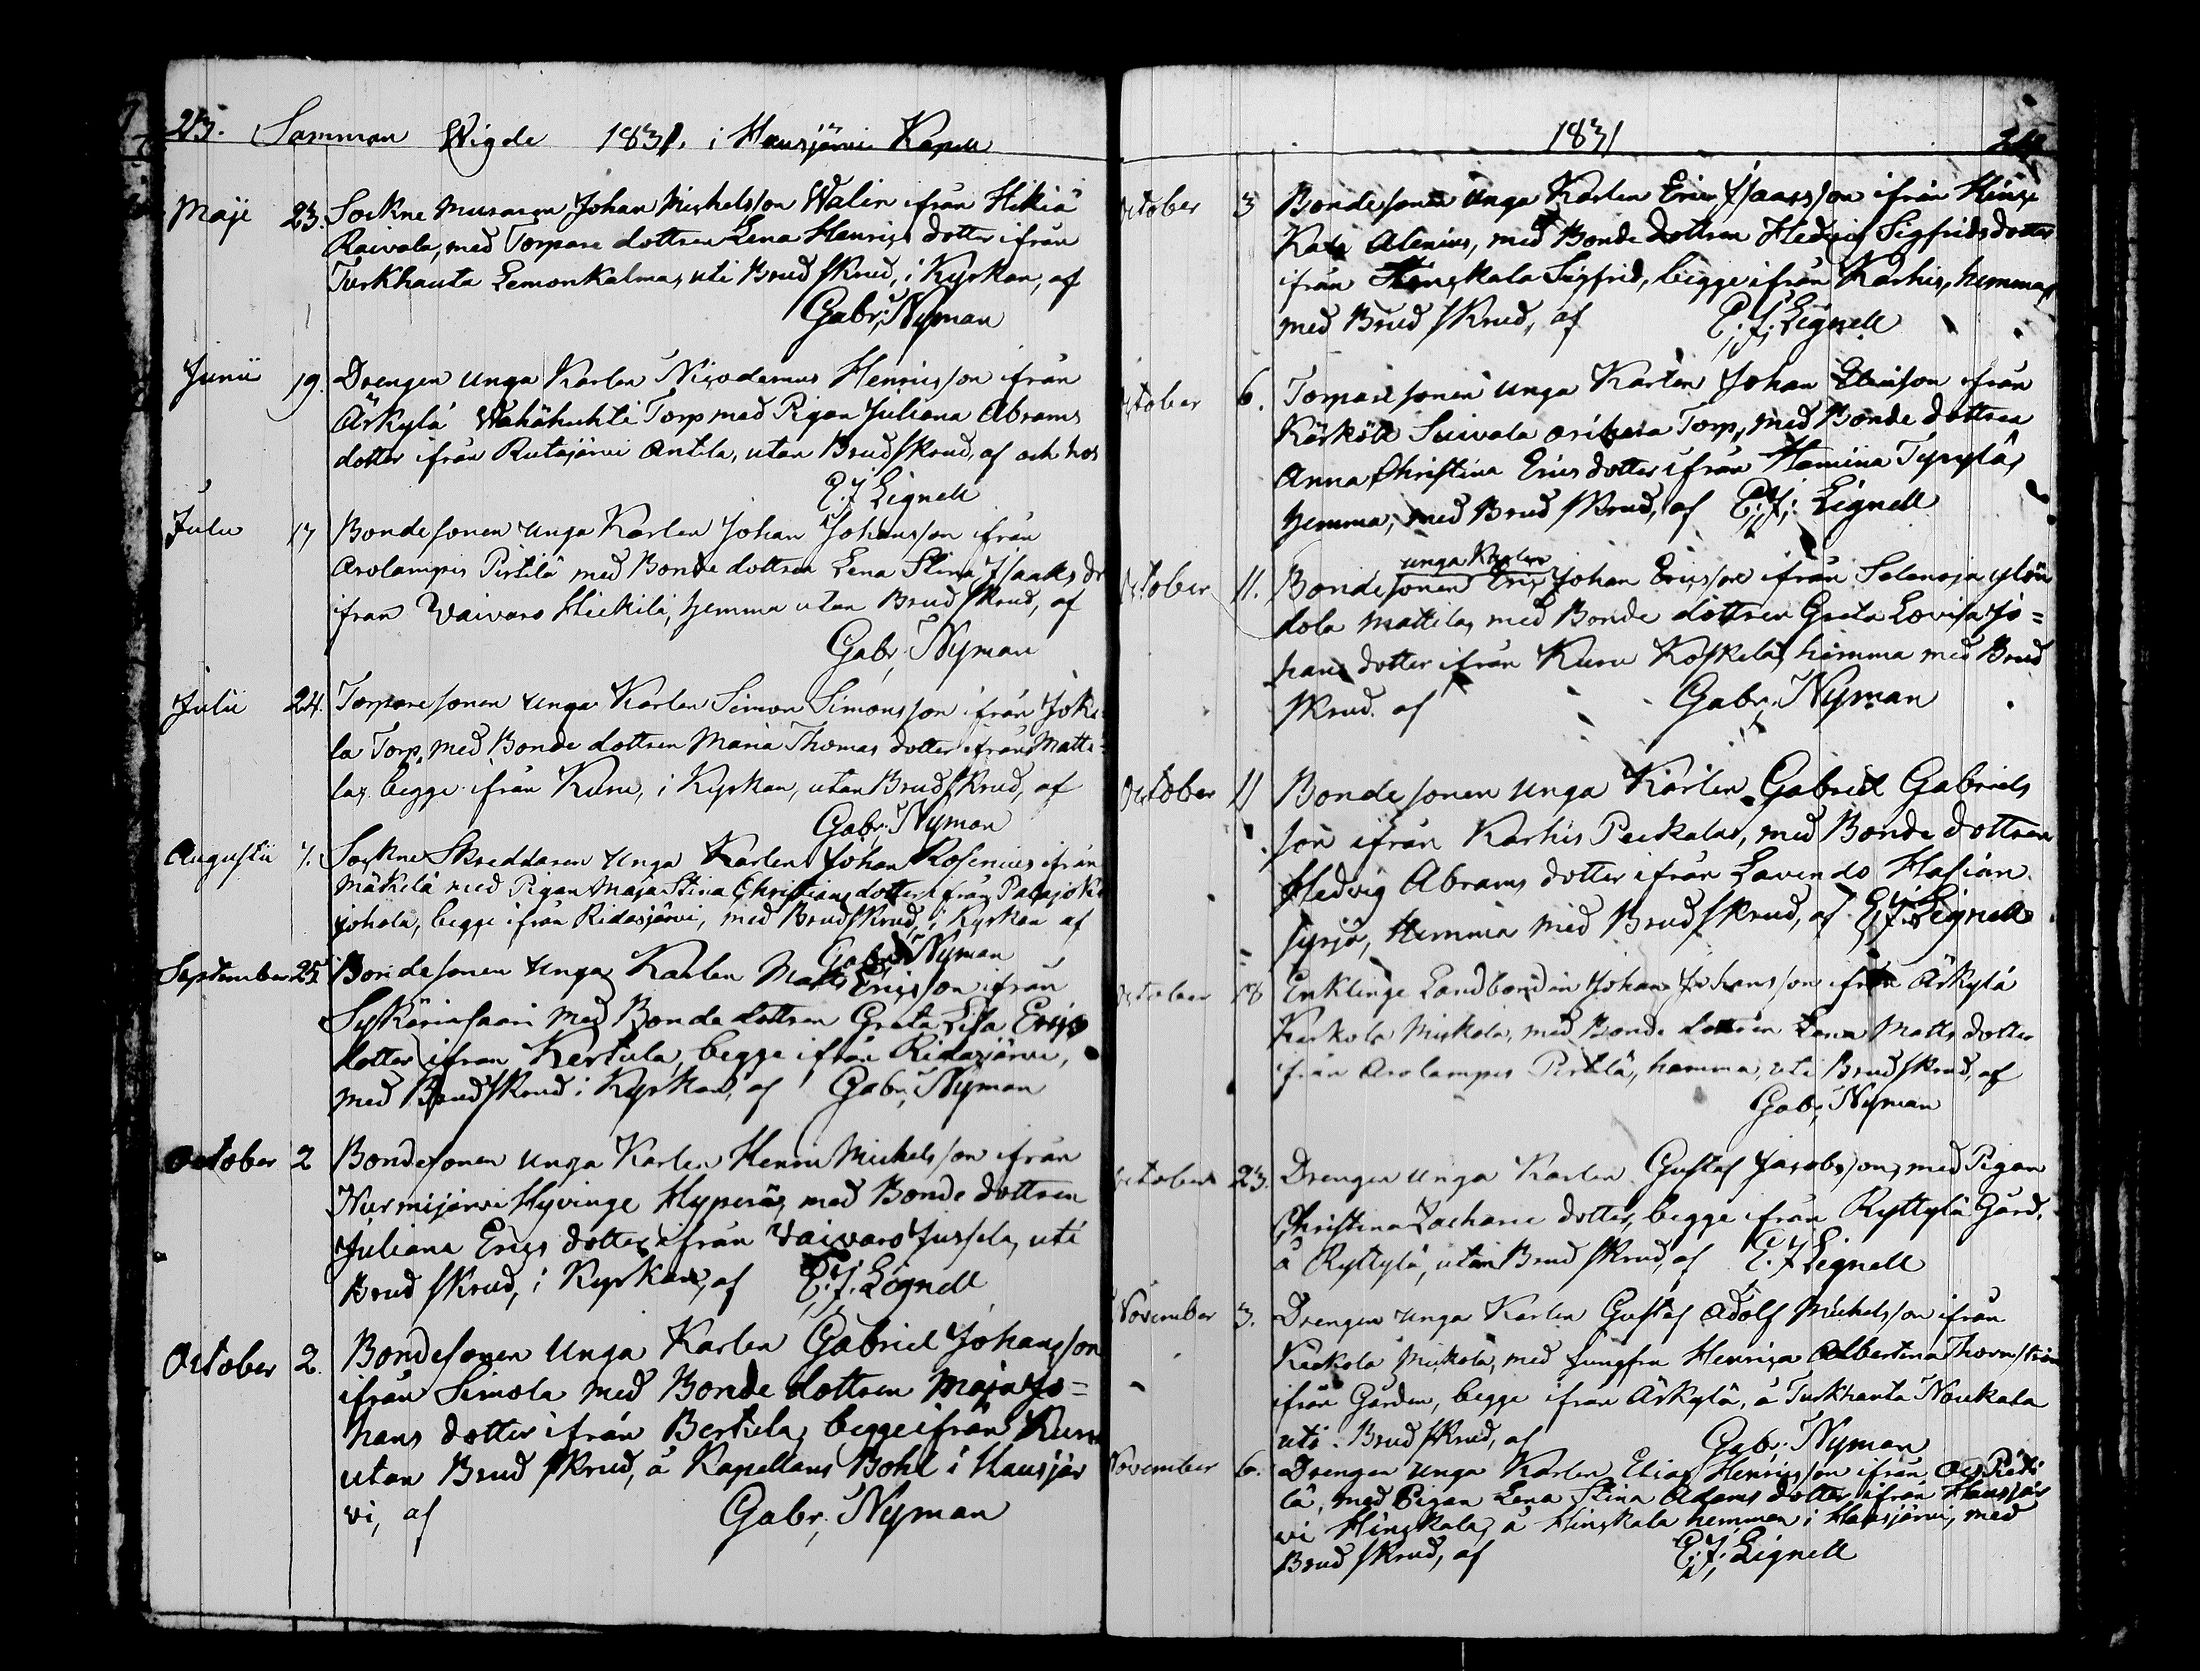 213. Samman Wigde 1831. i Hausjärvi Kapell
Maji 23. Sockne Muraren Johan Michelsson Walin ifrån Hikiä
Raivala, med Torpare dottren Lena Henrics dotter ifrån
Turkhauta Lemonkalma, uti Brudskrud, i Kyrkan, af
Gabr. Nyman
Junii 19. Drengen unga Karlen Nicodemus Henricsson ifrån
Ärkylä Wahähuhti Torp med Pigan Juliana Abrams
dotter ifrån Rutajärvi Antila, utan Brudskrud, af och hos
E. J. Lignell
Julii 17 Bondesonen unga Karlen Johan Johansson ifrån
Arolampis Pirtilä med Bonde dottren Lena Stina Isaaks dr
ifrån Vaivaro Heickilä, hemma utan Brudskrud, af
Gabr. Nyman
Julii 24. Torparesonen unga Karlen Simon Simonsson ifrån Joke
la Torp, med Bonde dottren Maria Thomas dotter ifrån Matti=
la, begge ifrån Kuru, i Kyrkan, utan Brudskrud, af
Gabr. Nyman
Augustii 7. Sockne Skreddaren unga Karlen Johan Rosenius ifrån
Mäkelä med Pigan Maja Stina Christians dotter ifrån Palajoki
johola, begge ifrån Ridasjärvi, med Brudskrud, i Kyrkan af
Gabr. Nyman
September 25. Bondesonen unga Karlen Matts Ericsson ifrån
Syskärinsaari med Bonde dottren Greta Lisa Erics
dotter ifrån Kertula, begge ifrån Ridasjärvi,
med Brudskrud i Kyrkan, af Gabr. Nyman
October 2 Bondesonen unga Karlen Henric Michelsson ifrån
Nurmijärvi Hyvinge Hyperä, med Bonde dottren
Juliana Erics dotter ifrån Vaivaro Jussila, uti
Brudskrud, i Kyrkan, af E. J. Lignell
October 2. Bondesonen unga Karlen Gabriel Johansson
ifrån Simola med Bonde dottren Maja Jo=
hans dotter ifrån Bertula, begge ifrån Kuru
utan Brudskrud, å Kapellans Bohl i Hausjär
vi, af Gabr. Nyman
1831
October 3 Bondesonen unga Karlen Eric Isaacsson ifrån
Kala Alenius, med Bonde dottren Hedvig Sigfridsdotter
ifrån Hongkala Sigfrid, begge ifrån Karhis, hemma
med Brudskrud, af E. J. Lignell
October 6. Torparesonen unga Karlen Johan ifrån
Kärköle Suivala Torp, med Bonde dottren
Anna Christina Erics dotter ifrån Hamina Typylä,
hemma, med Brudskrud, af E. J. Lignell
unga Karlen
October 11. Bondesonen Eric Johan Ericsson ifrån
dola Mattila, med Bonde dottren Greta Lovisa Jo=
hans dotter ifrån Kuru Koskela, hemma med Brud
skrud. af Gabr. Nyman
October 11 Bondesonen unga Karlen Gabriel Gabriels
son ifrån Karhis Peckalas, med Bonde dottren
Hedvig Abrams dotter ifrån Lavendo Hasian
syrjä, Hemma med Brudskrud, af E. J. Lignell
October 18 Enklinge Landbonden Johan Johansson ifrån Ärkylä
Karkola Mickola, med Bonde dottren Lena Matts dotter
ifrån Arolampis Pirtilä, hemma, uti Brudskrud, af
Gabr. Nyman
October 23. Drengen unga Karlen Gustaf Jacobsson, med Pigan
Christina Zacharie dotter, begge ifrån Ryttylä Gård,
å Ryttylä, utan Brudskrud, af E. J. Lignell
November 3. Drengen unga Karlen Gustaf Adolf Michelsson ifrån
Karkola Mickola, med Jungfru Henrica Albertina Thornström
ifrån Gården, begge ifrån Ärkylä, å Turkhauta Noukala
uti Brudskrud, af Gabr. Nyman
November 6. Drengen unga Karlen Elias Henricsson ifrån
lä, med Pigan Lena Stina Adams dotter ifrån Hausjär
vi Hingkala, å Hingkala hemman i Hausjärvi, med
Brudskrud, af E. J. Lignell